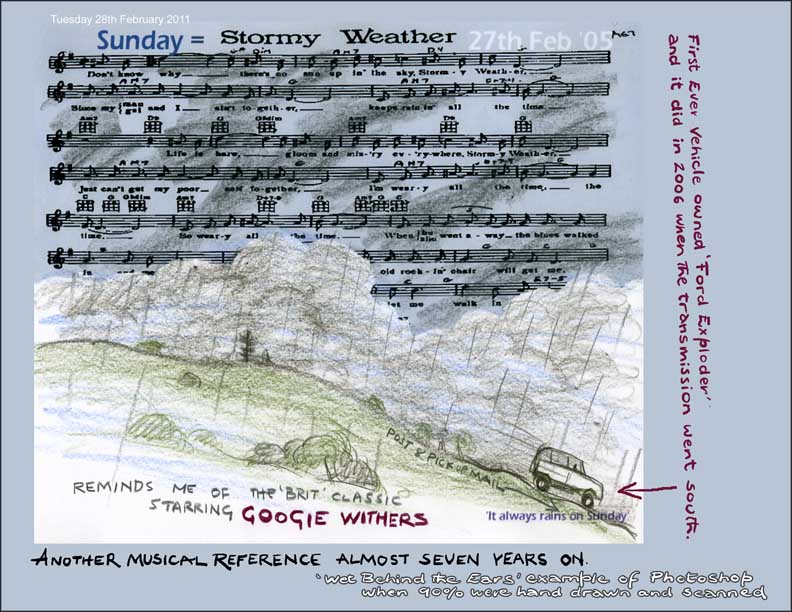 Tuesday 28th February 2011
Sunday = Stormy Weather 27th Feb '05
Don't know why__ there's no sun up in the sky, Storm - y Weath-er,
Since my man gal and I__ ain't to-geth-er,__ keeps rain in' all the time.__
Am7 D9 G G#dim Am7 D9 G
Life is bare,__ gloom and mis-'ry ev-'ry-where, Storm-y Weath-er__
Just can't get my poor__ self to-gether, I'm wear-y all the time,__ the
time,__ So wear-y all the time.__ When he she went a-way__ the blues walked
in
old rock-in' chair will get me
let me walk in
First Ever Vehicle owned 'Ford Exploder'
and it did in 2006 when the transmission went south.
POST & PICK UP MAIL
REMINDS ME OF THE 'BRIT' CLASSIC
STARRING GOOGIE WITHERS
'It always rains on Sunday'
ANOTHER MUSICAL REFERENCE ALMOST SEVEN YEARS ON.
'Wet Behind the Ears' example of Photoshop
when 90% were hand drawn and scanned